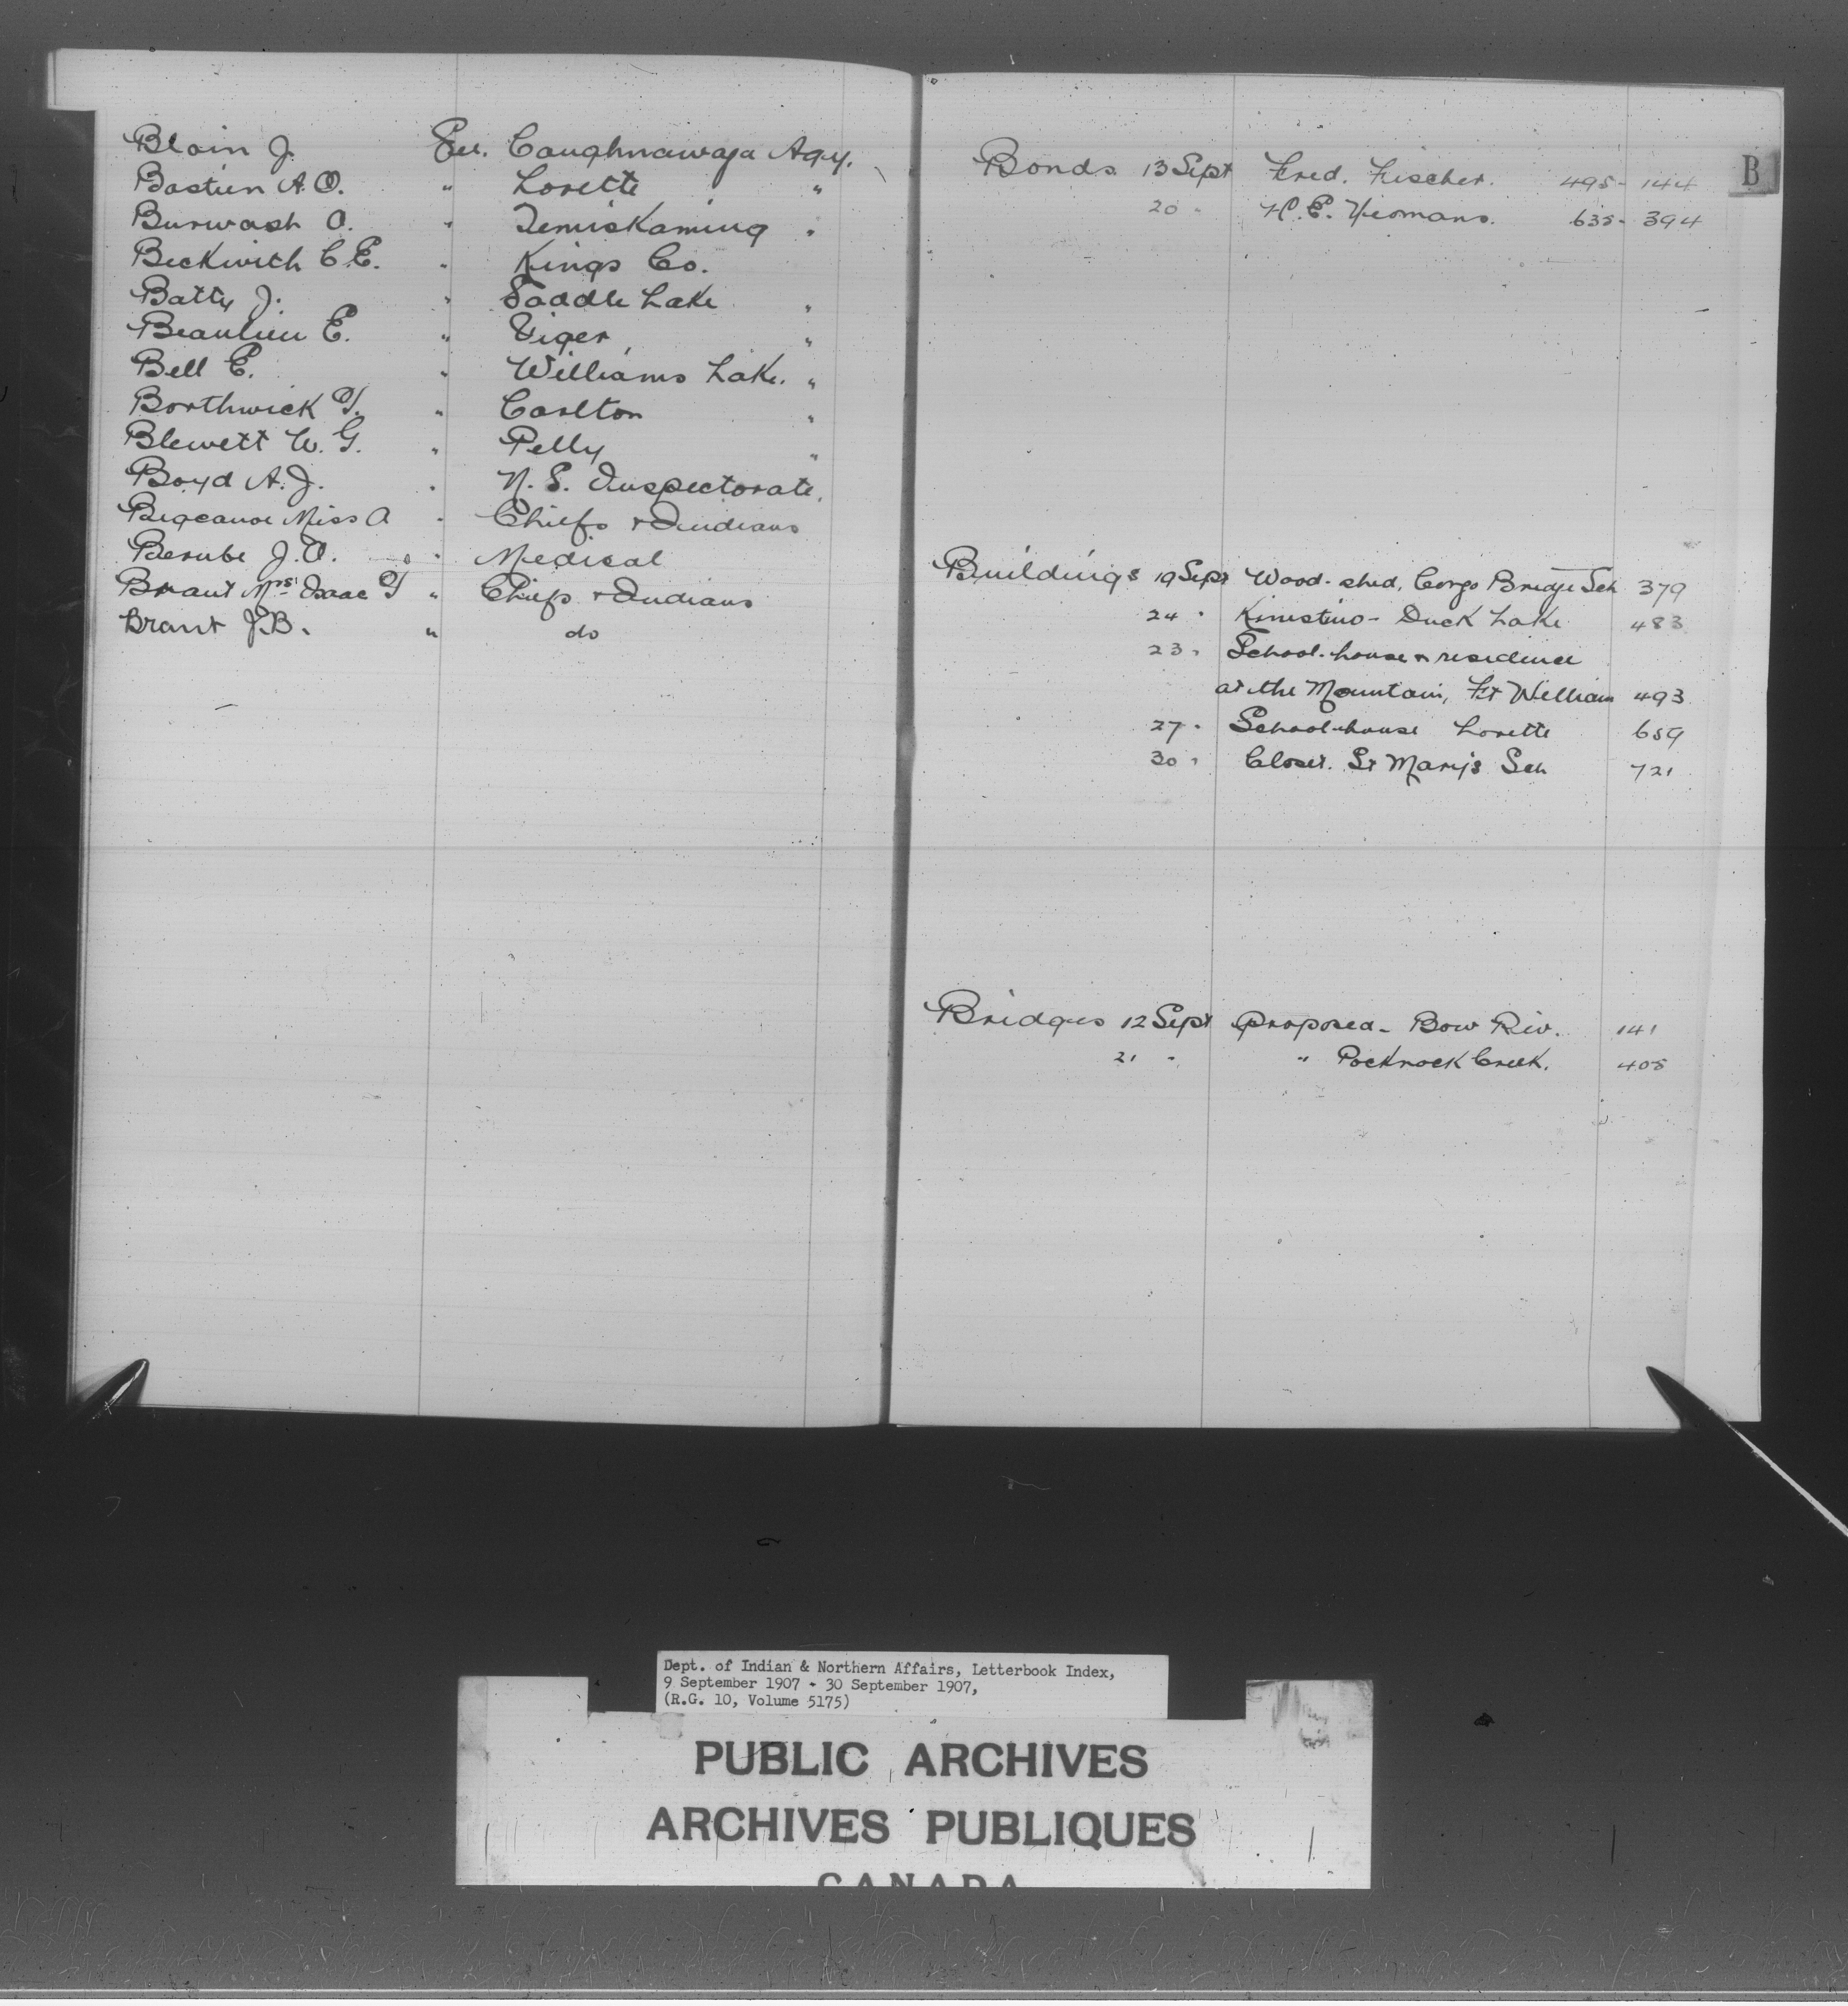 Blain J. See. Caughnawaga Agy.
Bastien A. O. " Lorette "
Burwash A. " Temiskaming "
Beckwith C. E. " Kings Co.
Batty J. " Saddle Lake "
Beaulieu E. " Viger "
Bell E. " Williams Lake. "
Borthwick T. " Carlton "
Blewett W. G. " Pelly "
Boyd A. J. " N. S. Inspectorate.
Bigcanoe Miss A " Chiefs & Indians
Berube J. O. " Medical
Brant Mrs Isaac T " Chiefs & Indians
Brant J.B. " do
B
Bonds 13 Sept Fred. Fischer. 495 - 144
20 " H. E. Yeomans. 635 - 394
Buildings 19 Sept Wood-shed, Congo Bridge Sch 379
24 " Kinistino - Duck Lake 483
23 " School-house & residence
at the Mountain, Ft William 493
27 " School-house Lorette 659
30 " Closet. St Mary's Sch 721
Bridges 12 Sept proposed - Bow Riv. 141
21 " " Pocknock Creek. 405
Dept. of Indian & Northern Affairs, Letterbook Index,
9 September 1907 - 30 September 1907,
(R.G. 10, Volume 5175)
PUBLIC ARCHIVES
ARCHIVES PUBLIQUES
CANADA